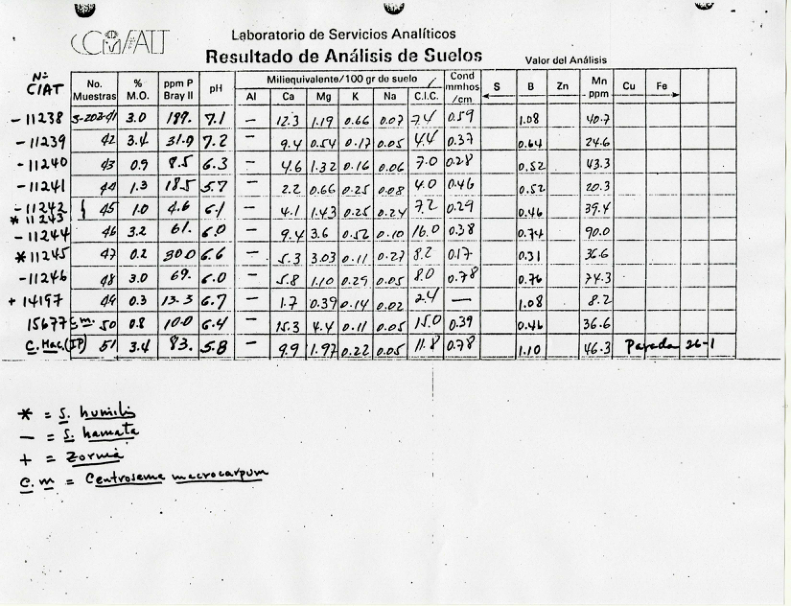 CIAT
Laboratorio de Servicios Analíticos
Resultado de Análisis de Suelos
Valor del Análisis
No. CIAT | No. Muestras | % M.O. | ppm P Bray II | pH | Miliequivalente/100 gr de suelo | Cond mmhos /cm | S | B | Zn | Mn ppm | Cu | Fe
Al | Ca | Mg | K | Na | C.I.C.
- 11238 | S-202-41 | 3.0 | 189. | 7.1 | — | 12.3 | 1.19 | 0.66 | 0.07 | 7.4 | 0.59 | 1.08 | 40.7
- 11239 | 42 | 3.4 | 31.9 | 7.2 | — | 9.4 | 0.54 | 0.17 | 0.05 | 4.4 | 0.37 | 0.64 | 24.6
- 11240 | 43 | 0.9 | 8.5 | 6.3 | — | 4.6 | 1.32 | 0.16 | 0.06 | 7.0 | 0.28 | 0.52 | 43.3
- 11241 | 44 | 1.3 | 18.5 | 5.7 | — | 2.2 | 0.66 | 0.25 | 0.08 | 4.0 | 0.46 | 0.52 | 20.3
- 11242
* 11243 } 45 | 1.0 | 4.6 | 6.1 | — | 4.1 | 1.43 | 0.25 | 0.24 | 7.2 | 0.29 | 0.46 | 39.4
- 11244 | 46 | 3.2 | 61. | 6.0 | — | 9.4 | 3.6 | 0.52 | 0.10 | 16.0 | 0.38 | 0.74 | 90.0
* 11245 | 47 | 0.2 | 30.0 | 6.6 | — | 5.3 | 3.03 | 0.11 | 0.27 | 8.2 | 0.17 | 0.31 | 36.6
- 11246 | 48 | 3.0 | 69. | 6.0 | — | 5.8 | 1.10 | 0.29 | 0.05 | 8.0 | 0.78 | 0.76 | 74.3
+ 14197 | 49 | 0.3 | 13.3 | 6.7 | — | 1.7 | 0.39 | 0.14 | 0.02 | 2.4 | — | 1.08 | 8.2
15677 | 50 | 0.8 | 10.0 | 6.4 | — | 15.3 | 4.4 | 0.11 | 0.05 | 15.0 | 0.39 | 0.46 | 36.6
C. Mac. (IP) | 51 | 3.4 | 83. | 5.8 | — | 9.9 | 1.97 | 0.22 | 0.05 | 11.8 | 0.78 | 1.10 | 46.3 | 26-1
* = S. humilis
— = S. hamata
+ = Zornia
C. m = Centrosema macrocarpum